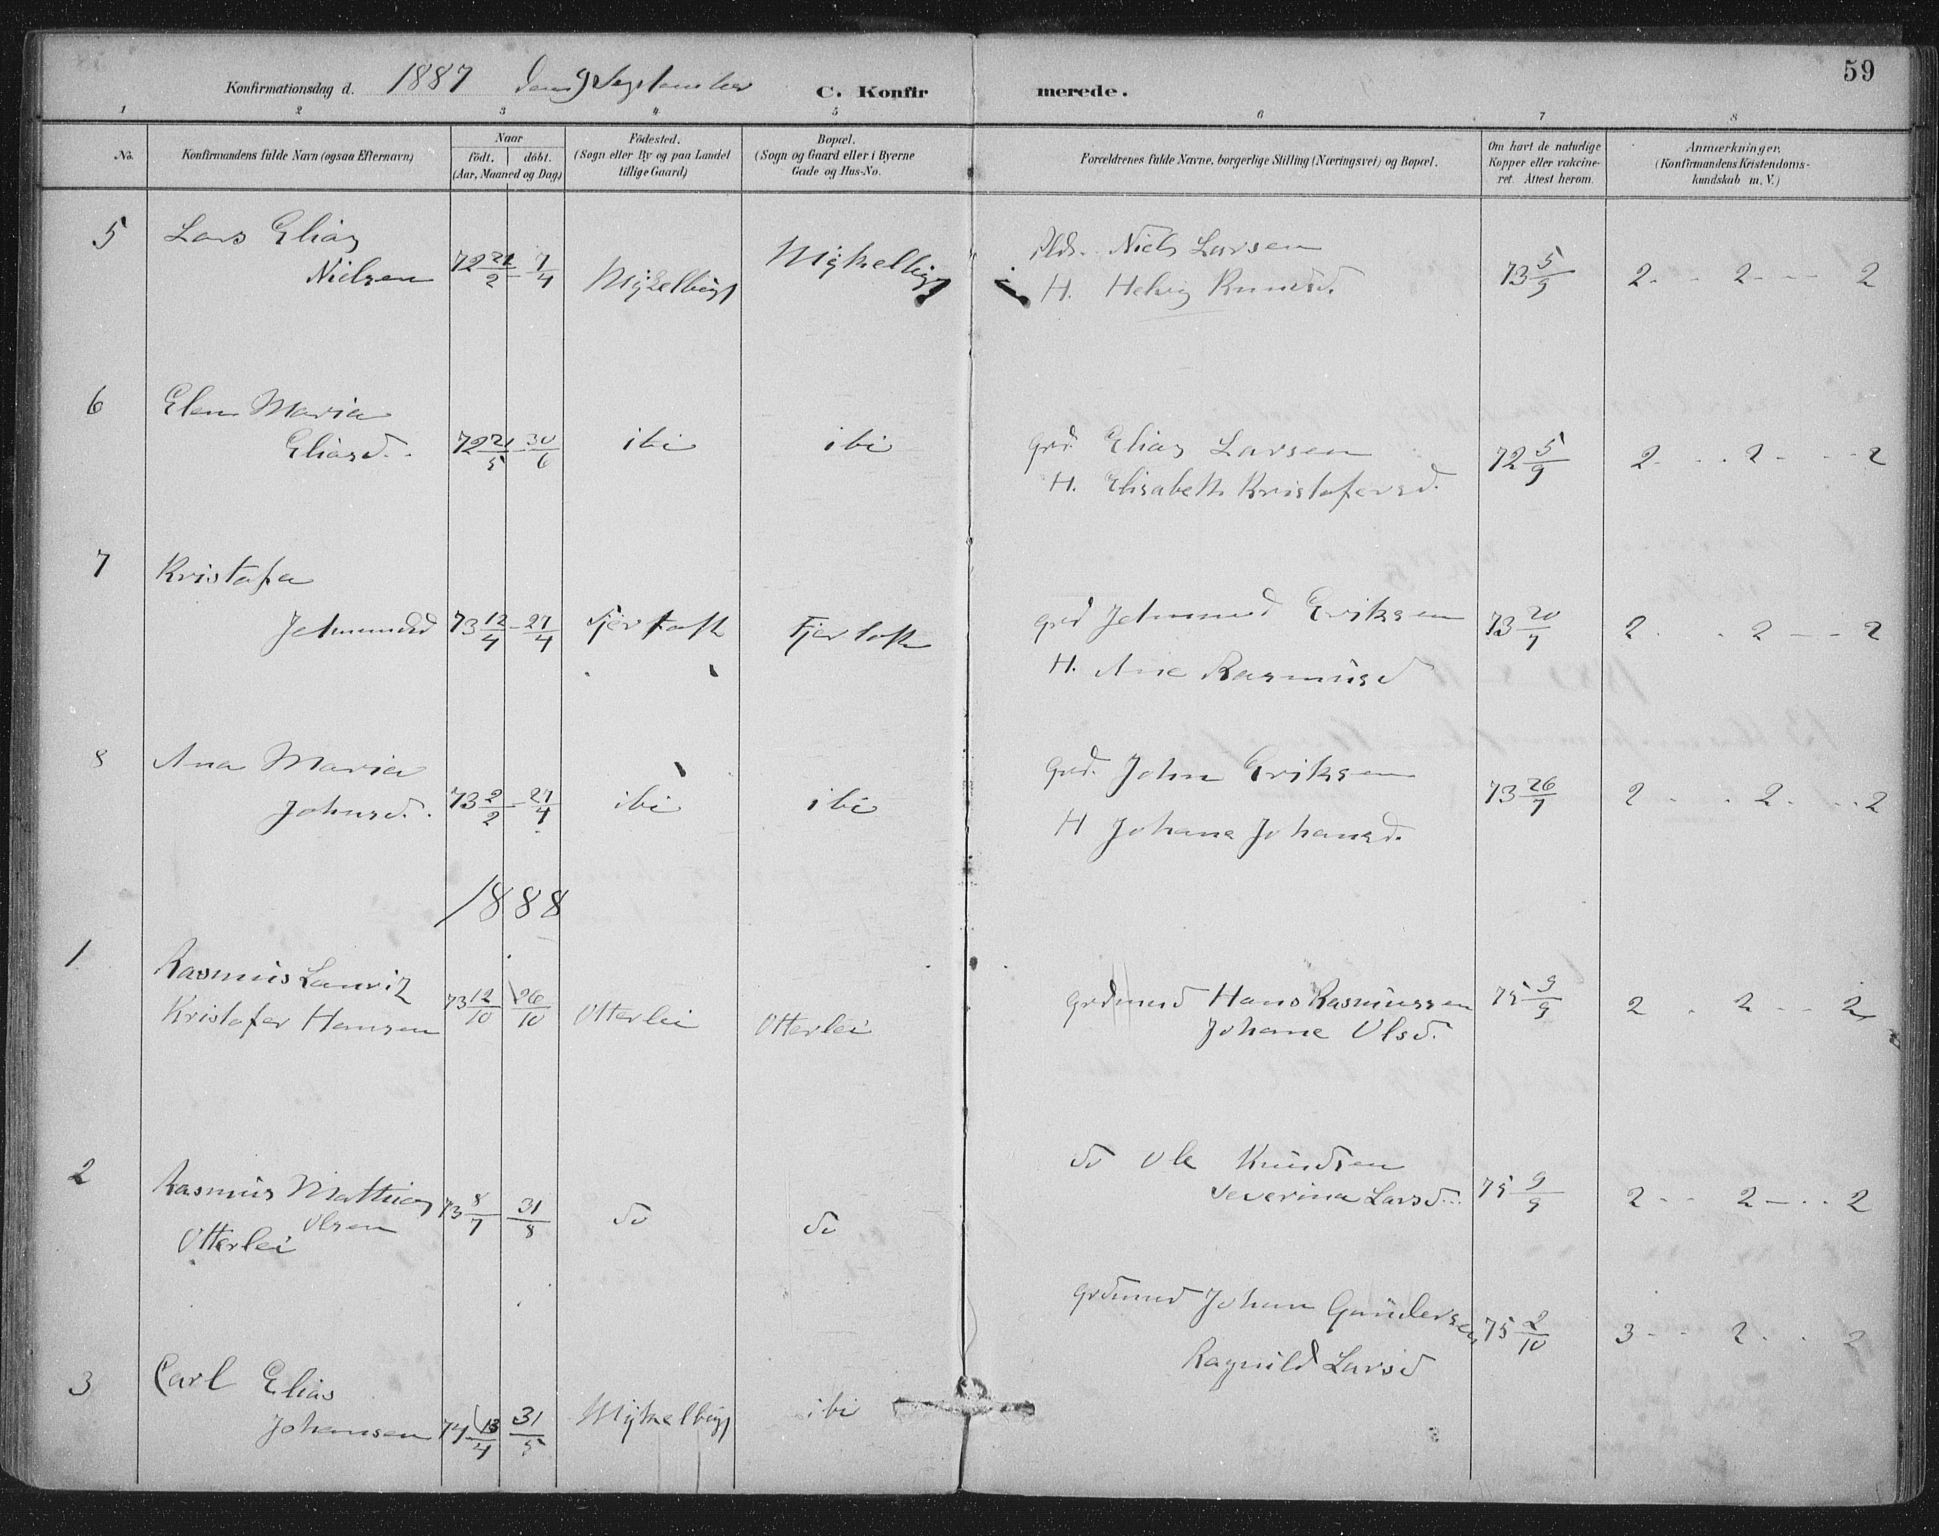 59
Konfirmationsdag d. 1887 den 9 September C. Konfirmerede.
1 2 3 4 5 6 7 8
No. Konfirmandens fulde Navn (ogsaa Efternavn)
Naar
födt. | döbt.
(Aar, Maaned og Dag)
Födested.
(Sogn eller By og paa Landet
tillige Gaard)
Bopæl.
(Sogn og Gaard eller i Byerne
Gade og Hus-No.
Forældrenes fulde Navne, borgerlige Stilling (Næringsvei) og Bopæl.
Om havt de naturlige
Kopper eller vakcine-
ret. Attest herom.
Anmærkninger.
(Konfirmandens Kristendoms-
kundskab m. V.)
5 Lars Elias
Nielsen 72 21/2 - 7/4 Mykelbúst Mykelbúst
Niels Larsen
H. Helvig Knudsd. 73 5/9 2 - - 2 - - - 2
6 Elen Maria
Eliasd. 72 21/5 - 30/6 ibi ibi
Grd. Elias Larsen
H. Elisabeth Kristofersd. 72 5/9 2 - - - 2 - - - 2
7 Kristofa
Jetmundsd 73 12/4 - 27/4 Fjertoft Fjertoft
Grd Jetmund Eriksen
H. Ane Rasmúsd 73 20/7 2 - - 2 - - - 2
8 Ana Maria
Johnsd. 73 2/2 - 27/4 ibi ibi
Grd. John Eriksen
H Johane Johansd. 73 26/7 2 - - 2 - - - 2
1888
1 Rasmús Lauritz
Kristofer Hansen 73 12/10 26/10 Otterlei Otterlei
Grdmnd Hans Rasmússen
Johane Olsd. 75 9/9 2 - 2 - - 2
2 Rasmús Mathias
Olsen
Otterlei 73 8/7 - 31/8 do do
do Ole Knúdsen
Severina Larsd. 75 9/9 2 - - 2 - - - 2
3 Carl Elias
Johansen 74 13/4 31/5 Mykelbúst ibi
Grdmnd Johan Gúndersen
Ragnild Larsd 75 2/10 3 - - 2 - - 2